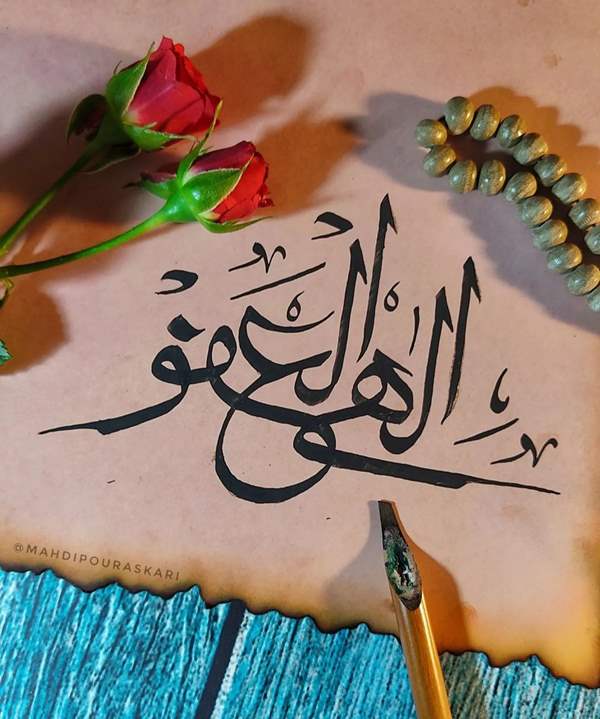 الهی العفو
@MAHDIPOURASKARI